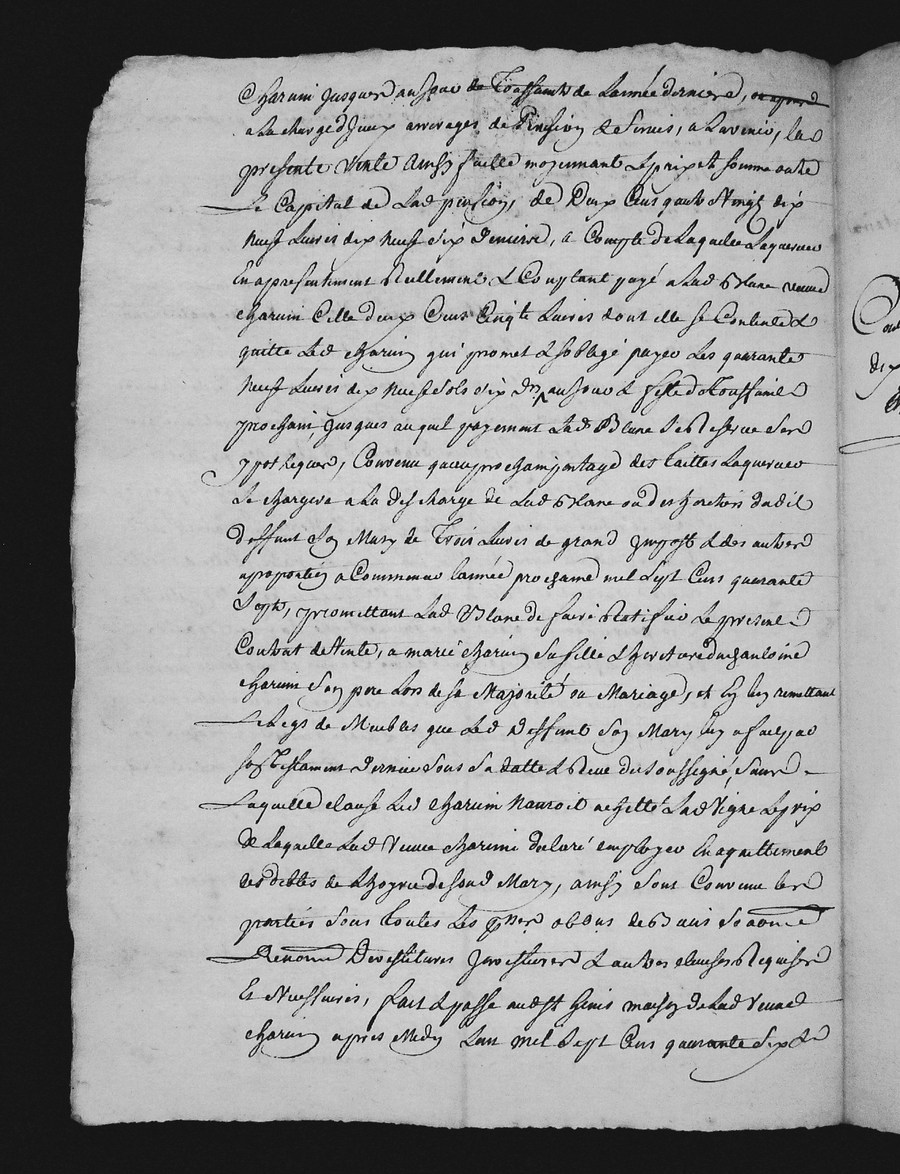 Charuin jusques au jour de Toussaints de Lannée derniere,
a La charge d'iceux arrerages de Pension & servis, a Lavenir, La
presente vente ainsy faitte moyennant Le prix et somme outre
Le Capital de Lad pension, de Deux Cens quatre Vingt dix
neuf Livres dix neuf six deniers, a Compte de Laquelle Laquereur
En a presentement Reellement & Comptant payé a Lad Blanc veuve
Charuin Celle deux Cens Cinqte Livres dont elle se Contente &
quitte Led Charuin qui promet & soblige payer Les quarante
neuf Livres dix neuf sols six drs au jour & feste de Toussaint
prochain jusques auquel payement Lad Blanc se Reserve Son
ypotheque, Convenu quau prochain portage des tailles Laquereur
se chargera a La descharge de Lad Blanc ou des hoiries dudit
deffunt son Mary de Trois Livres de grand impost & des autres
a proportion a Commencer Lannée prochaine mil sept Cens quarante
Sept, promettant Lad Blanc de faire Ratifier Le present
Contrat de Vente, a marie Charuin sa fille & heritiere dud antoine
Charuin son pere Lors de sa Majorité ou Mariage, et en luy remettant
Le Legs de Meubles que Led Deffunt son Mary luy a fait par
son testament dernier sous sa datte & Reçu du soussigné, sans
Laquelle clause Led Charuin nauroit achetté Lad Vigne Le prix
de Laquelle Lad Veuve Charuin declaré employer En aquittement
des debtes de Lhoyrie de sond Mary, ainsy sont Convenu Les
parties sous toutes Les
Renonces Devestitures jnvestitures & autres clauses Requises
Et Necessaires, fait & passé aud St Genis maison de Lad Veuve
Charuin apres Midy Lan mil Sept Cens quarante Six &